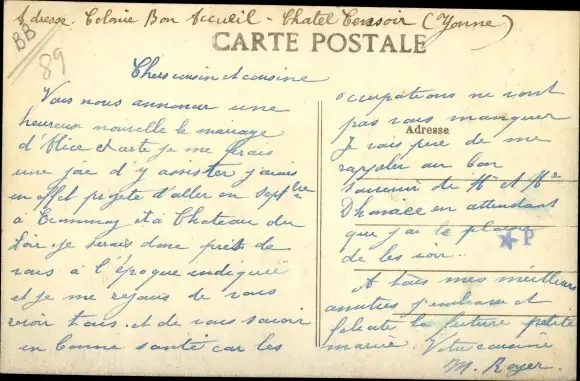 Adresse. Colonie Bon Accueil - Chatel Censoir (Yonne)
BB
89
CARTE POSTALE
Chers cousin et cousine
Vous nous annoncez une
heureuse nouvelle le mariage
d'Alice et certe je me ferais
une joie d'y assister j'avais
en effet projeté d'aller en Septbre
à et à Chateau du
Loir je serais donc près de
vous à l'époque indiquée
et je me rejouis de vous
revoir tous. et de vous savoir
en bonne santé car les
occupations ne vont
pas vous manquer
Adresse
Je vous prie de me
rappeler au bon
souvenir de Mr et Mme
en attendant
que j'ai le plaisir
de les voir.
P
A tous mes meilleurs
amitiés j'embrasse et
felicite la future petite
mariée. Votre cousine
M. Royer.